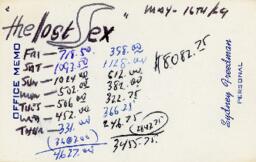 "the lost Sex" "MAY-16TH/69
OFFICE MEMO
FRI 718.50. 358.00
SAT- 1193.50 1128.00
SUN- 1024.00 612.00
MON- 502.00 382.00
TUES 506.00 322.75
WED- 452.00 366.25
THUR- 331.00 246.75
$8082.75
4627.00 3455.75
Sydney Freedman
PERSONAL